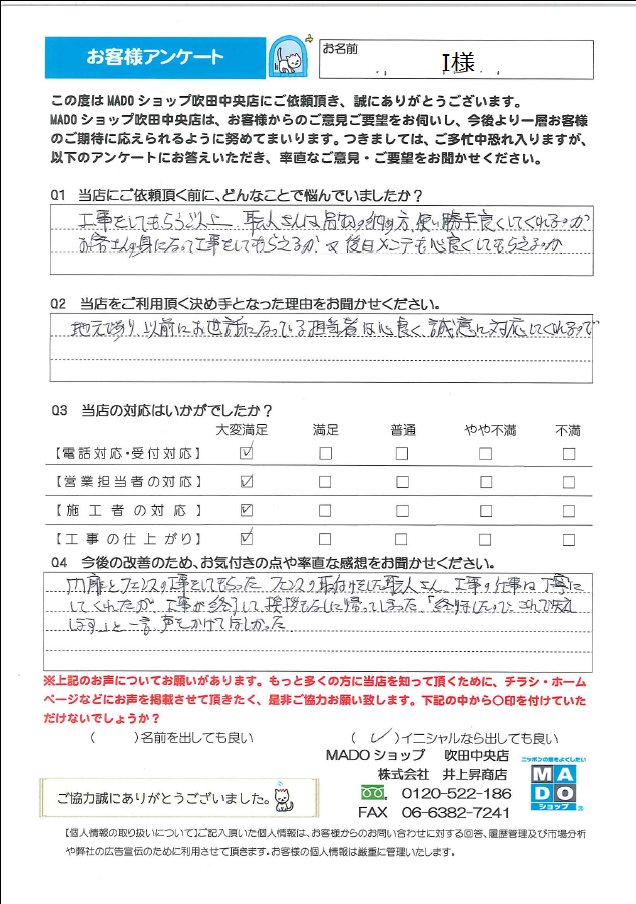 お客様アンケート
お名前
I様
この度は MADO ショップ吹田中央店にご依頼頂き、誠にありがとうございます。
MADO ショップ吹田中央店は、お客様からのご意見ご要望をお伺いし、今後より一層お客様
のご期待に応えられるように努めてまいります。つきましては、ご多忙中恐れ入りますが、
以下のアンケートにお答えいただき、率直なご意見・ご要望をお聞かせください。
Q1 当店にご依頼頂く前に、どんなことで悩んでいましたか？
工事をしてもらう以上 職人さんは 品物の納め方、使い勝手良くしてくれるのか
お客さんの身になって工事をしてもらえるか 又後日メンテも心良くしてもらえるのか
Q2 当店をご利用頂く決め手となった理由をお聞かせください。
地元であり 以前にお世話になっている担当者は心良く、誠意に対応してくれるので
Q3 当店の対応はいかがでしたか？
大変満足 満足 普通 やや不満 不満
【電話対応・受付対応】 ☑ □ □ □ □
【営業担当者の対応】 ☑ □ □ □ □
【施工者の対応】 ☑ □ □ □ □
【工事の仕上がり】 ☑ □ □ □ □
Q4 今後の改善のため、お気付きの点や率直な感想をお聞かせください。
門扉とフェンスの工事をしてもらった フェンスの取付けをした職人さん 工事の仕事は丁寧に
してくれたが、工事が終了して挨拶もなしに帰ってしまった 「終了したので、これで失礼
します」と一言 声をかけてほしかった
※上記のお声についてお願いがあります。もっと多くの方に当店を知って頂くために、チラシ・ホーム
ページなどにお声を掲載させて頂きたく、是非ご協力お願い致します。下記の中から〇印を付けていた
だけないでしょうか？
（ ）名前を出しても良い （ ✓ ）イニシャルなら出しても良い
MADO ショップ 吹田中央店
株式会社 井上昇商店
0120-522-186
FAX 06-6382-7241
ニッポンの窓をよくしたい
MADO
ショップ
ご協力誠にありがとうございました。
【個人情報の取り扱いについて】ご記入頂いた個人情報は、お客様からのお問い合わせに対する回答、履歴管理及び市場分析
や弊社の広告宣伝のために利用させて頂きます。お客様の個人情報は厳重に管理いたします。